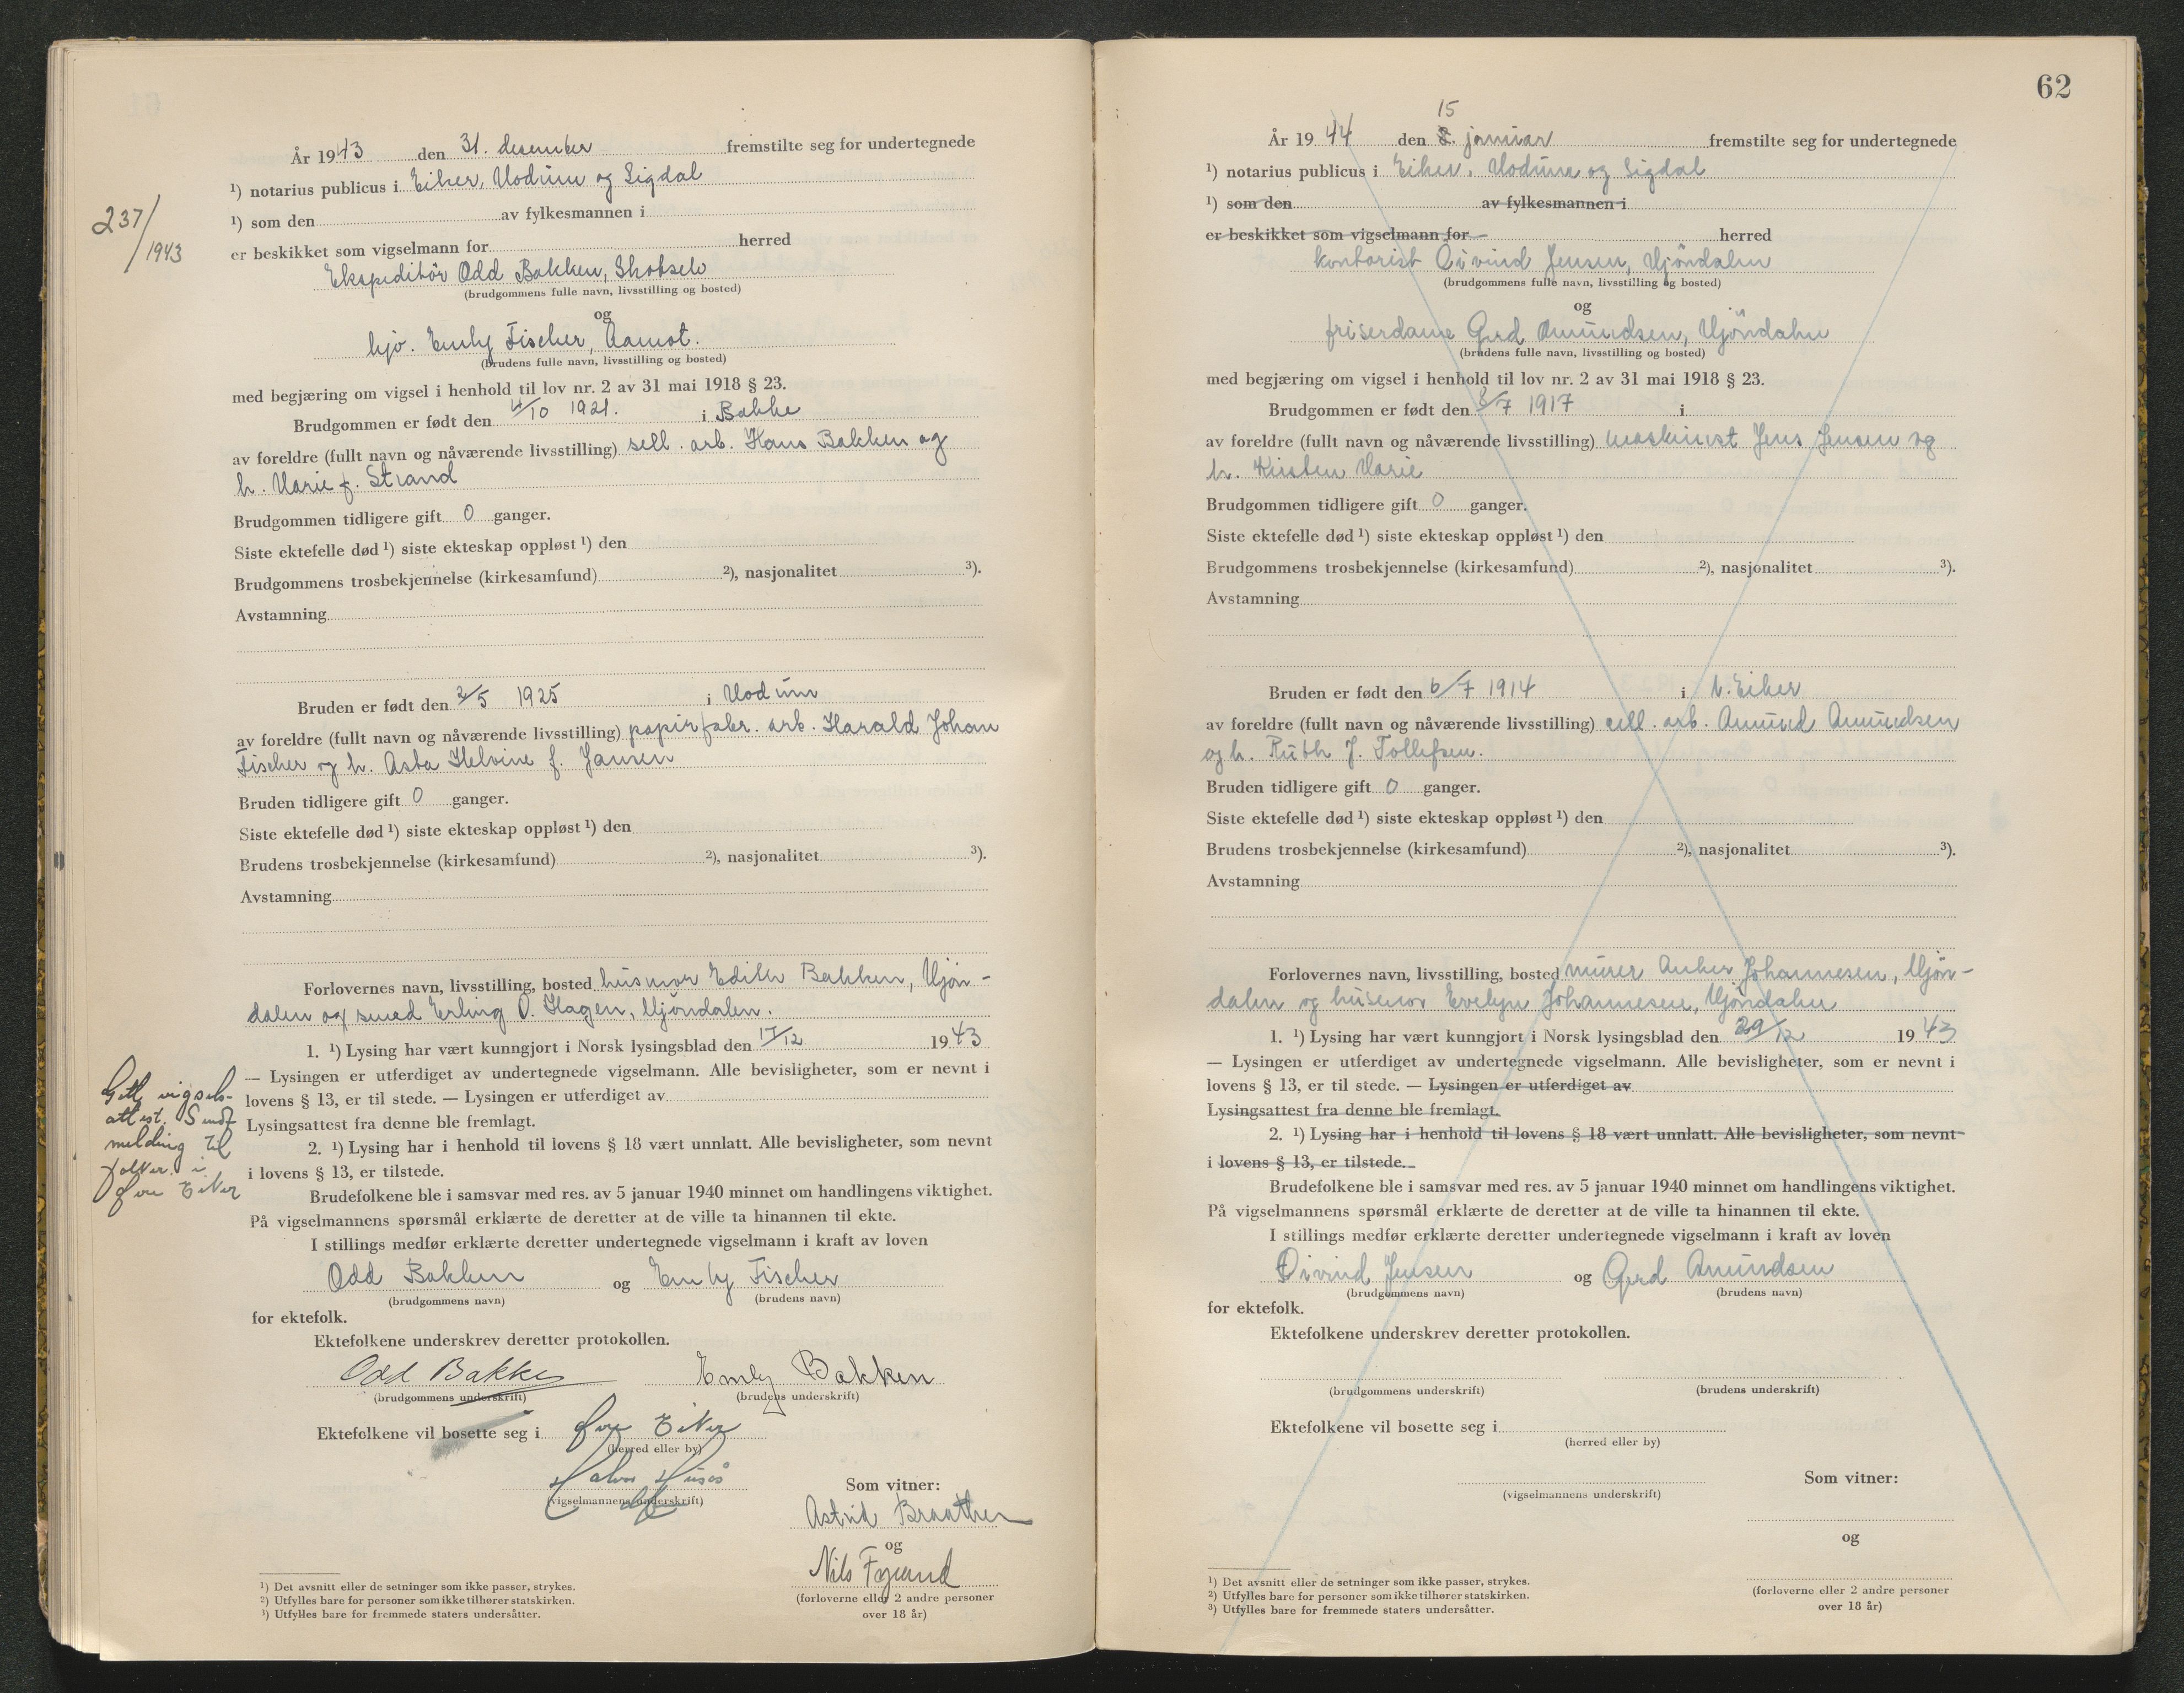 237/1943
År 1943 den 31. desember fremstilte seg for undertegnede
¹) notarius publicus i Eiker, Modum og Sigdal
¹) som den av fylkesmannen i
er beskikket som vigselmann for herred
Ekspeditör Odd Bakken, Skotselv
(brudgommens fulle navn, livsstilling og bosted)
og
hjv. Emly Fischer, Aamot.
(brudens fulle navn, livsstilling og bosted)
med begjæring om vigsel i henhold til lov nr. 2 av 31 mai 1918 § 23.
Brudgommen er født den 4/10 1921. i Bakke
av foreldre (fullt navn og nåværende livsstilling) sell. arb. Hans Bakken og
h. Marie f. Strand
Brudgommen tidligere gift 0 ganger.
Siste ektefelle død ¹) siste ekteskap oppløst ¹) den
Brudgommens trosbekjennelse (kirkesamfund) ²), nasjonalitet ³).
Avstamning
Bruden er født den 2/5 1925 i Modum
av foreldre (fullt navn og nåværende livsstilling) papirfabr. arb. Harald Johan
Fischer og h. Asta Helvine f. Jansen
Bruden tidligere gift 0 ganger.
Siste ektefelle død ¹) siste ekteskap oppløst ¹) den
Brudens trosbekjennelse (kirkesamfund) ²), nasjonalitet ³).
Avstamning
Forlovernes navn, livsstilling, bosted husmor Edith Bakken, Mjön-
dalen og smed Erling O. Hagen, Mjöndalen.
1. ¹) Lysing har vært kunngjort i Norsk lysingsblad den 17/12 1943
— Lysingen er utferdiget av undertegnede vigselmann. Alle bevisligheter, som er nevnt i
lovens § 13, er til stede. — Lysingen er utferdiget av
Lysingsattest fra denne ble fremlagt.
2. ¹) Lysing har i henhold til lovens § 18 vært unnlatt. Alle bevisligheter, som nevnt
i lovens § 13, er tilstede.
Gitt vigsels-
attest. Sendt
melding til
folker. i
Øvre Eiker
Brudefolkene ble i samsvar med res. av 5 januar 1940 minnet om handlingens viktighet.
På vigselmannens spørsmål erklærte de deretter at de ville ta hinannen til ekte.
I stillings medfør erklærte deretter undertegnede vigselmann i kraft av loven
Odd Bakken og Emly Fischer
(brudgommens navn) (brudens navn)
for ektefolk.
Ektefolkene underskrev deretter protokollen.
Odd Bakken Emly Bakken
(brudgommens underskrift) (brudens underskrift)
Ektefolkene vil bosette seg i Øvre Eiker
(herred eller by)
Halvor
(vigselmannens underskrift)
Som vitner:
Astrid Braathen
og
Nils
(forloverne eller 2 andre personer
over 18 år)
¹) Det avsnitt eller de setninger som ikke passer, strykes.
²) Utfylles bare for personer som ikke tilhører statskirken.
³) Utfylles bare for fremmede staters undersåtter.
62
15
År 1944 den 8. januar fremstilte seg for undertegnede
¹) notarius publicus i Eiker, Modum og Sigdal
¹) som den av fylkesmannen i
er beskikket som vigselmann for herred
kontorist Öivind Jensen, Mjöndalen
(brudgommens fulle navn, livsstilling og bosted)
og
friserdame Gerd Amundsen, Mjöndalen
(brudens fulle navn, livsstilling og bosted)
med begjæring om vigsel i henhold til lov nr. 2 av 31 mai 1918 § 23.
Brudgommen er født den 8/7 1917 i
av foreldre (fullt navn og nåværende livsstilling) maskinist Jens Jensen og
h. Kirsten Marie
Brudgommen tidligere gift 0 ganger.
Siste ektefelle død ¹) siste ekteskap oppløst ¹) den
Brudgommens trosbekjennelse (kirkesamfund) ²), nasjonalitet ³).
Avstamning
Bruden er født den 6/7 1914 i N. Eiker
av foreldre (fullt navn og nåværende livsstilling) cell. arb. Amund Amundsen
og h. Ruth J. Tollefsen.
Bruden tidligere gift 0 ganger.
Siste ektefelle død ¹) siste ekteskap oppløst ¹) den
Brudens trosbekjennelse (kirkesamfund) ²), nasjonalitet ³).
Avstamning
Forlovernes navn, livsstilling, bosted murer Anker Johannesen, Mjön-
dalen og husmor Evelyn Johannesen, Mjöndalen
1. ¹) Lysing har vært kunngjort i Norsk lysingsblad den 29/12 1943
— Lysingen er utferdiget av undertegnede vigselmann. Alle bevisligheter, som er nevnt i
lovens § 13, er til stede. — Lysingen er utferdiget av
Lysingsattest fra denne ble fremlagt.
2. ¹) Lysing har i henhold til lovens § 18 vært unnlatt. Alle bevisligheter, som nevnt
i lovens § 13, er tilstede.
Brudefolkene ble i samsvar med res. av 5 januar 1940 minnet om handlingens viktighet.
På vigselmannens spørsmål erklærte de deretter at de ville ta hinannen til ekte.
I stillings medfør erklærte deretter undertegnede vigselmann i kraft av loven
Öivind Jensen og Gerd Amundsen
(brudgommens navn) (brudens navn)
for ektefolk.
Ektefolkene underskrev deretter protokollen.
(brudgommens underskrift) (brudens underskrift)
Ektefolkene vil bosette seg i
(herred eller by)
(vigselmannens underskrift)
Som vitner:
og
(forloverne eller 2 andre personer
over 18 år)
¹) Det avsnitt eller de setninger som ikke passer, strykes.
²) Utfylles bare for personer som ikke tilhører statskirken.
³) Utfylles bare for fremmede staters undersåtter.